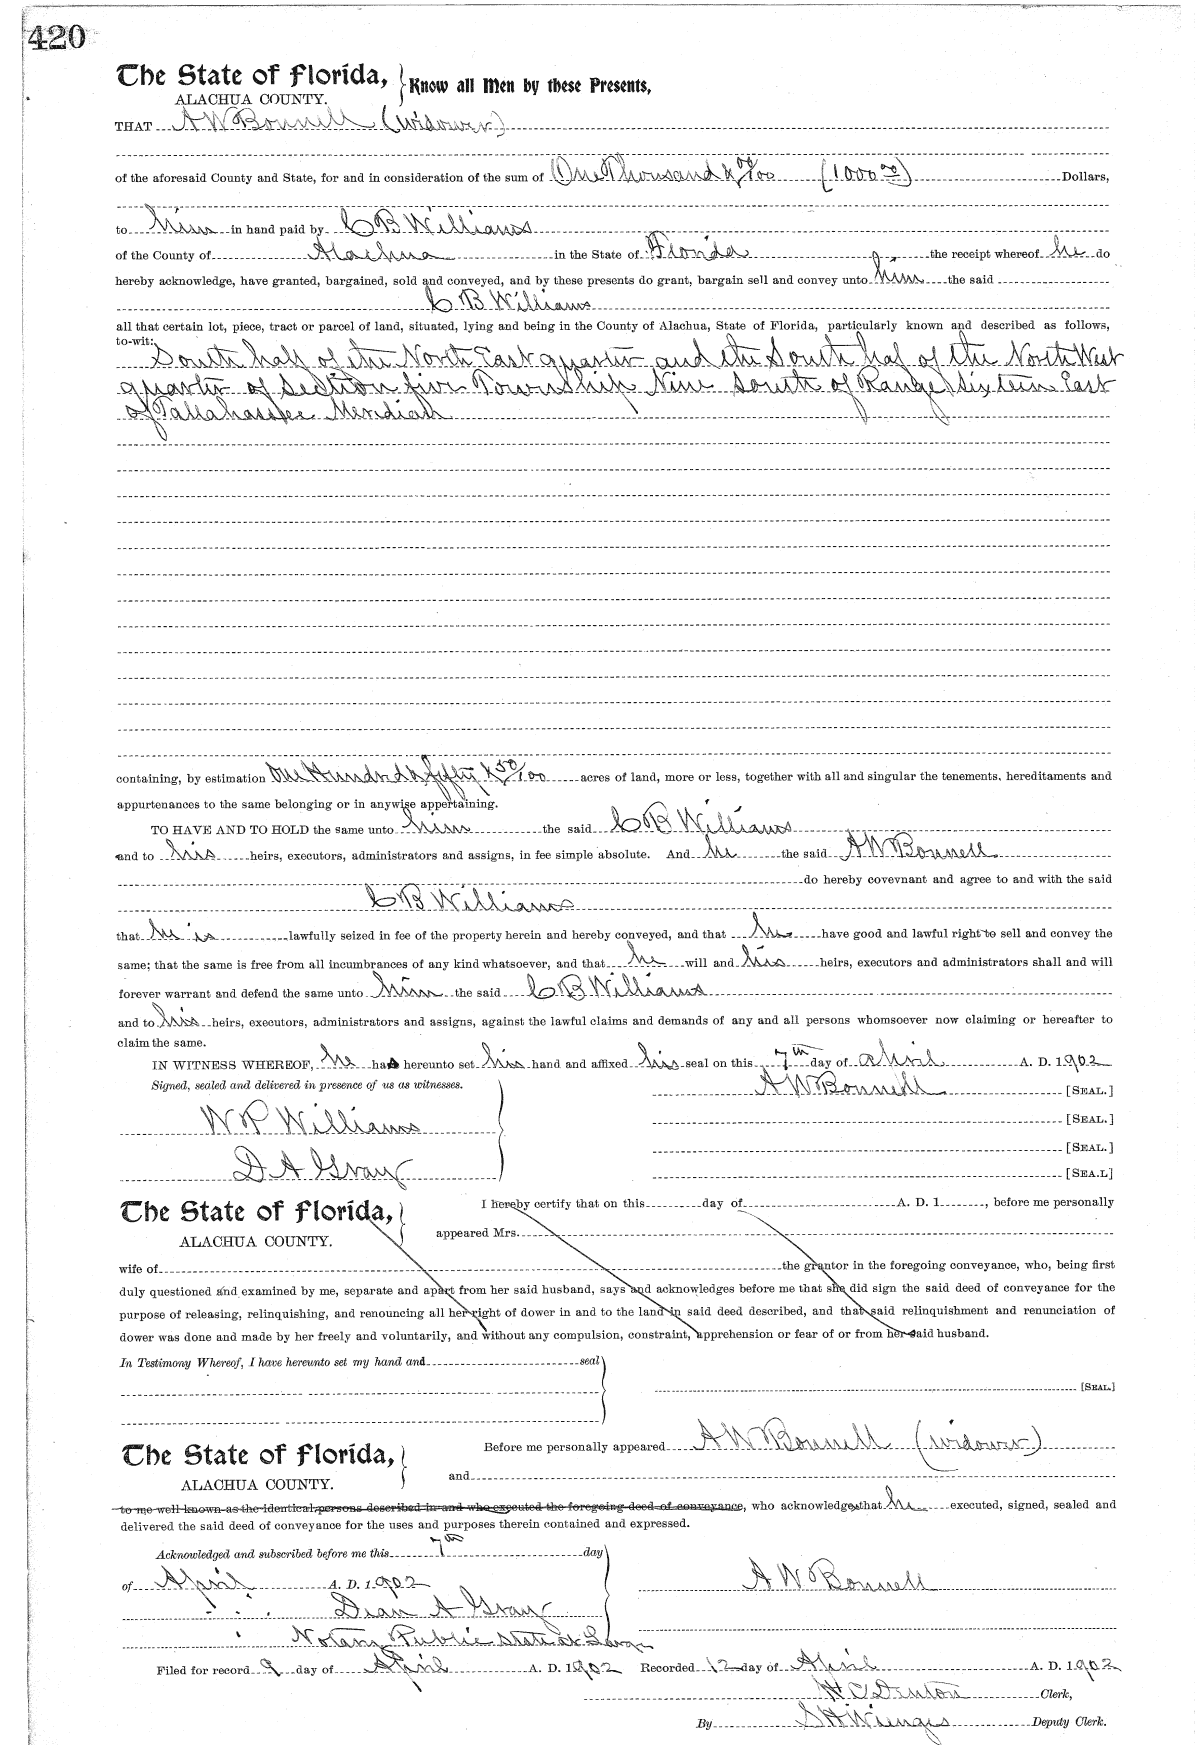 420
The State of Florida, Know all Men by these Presents,
ALACHUA COUNTY.
THAT A W Bonnell (widower)
of the aforesaid County and State, for and in consideration of the sum of One Thousand & 00/100 (1000 00) Dollars,
to him in hand paid by C B Williams
of the County of Alachua in the State of Florida the receipt whereof he do
hereby acknowledge, have granted, bargained, sold and conveyed, and by these presents do grant, bargain sell and convey unto him the said
C B Williams
all that certain lot, piece, tract or parcel of land, situated, lying and being in the County of Alachua, State of Florida, particularly known and described as follows,
to-wit:
South half of the North East quarter and the South haf of the North West
quarter of section five Township Nine south of Range sixteen East
of Tallahassee Meridian
containing, by estimation One Hundred & fifty & 50/100 acres of land, more or less, together with all and singular the tenements, hereditaments and
appurtenances to the same belonging or in anywise appertaining.
TO HAVE AND TO HOLD the same unto him the said C B Williams
and to his heirs, executors, administrators and assigns, in fee simple absolute. And he the said A W Bonnell
do hereby covevnant and agree to and with the said
C B Williams
that he is lawfully seized in fee of the property herein and hereby conveyed, and that he have good and lawful right to sell and convey the
same; that the same is free from all incumbrances of any kind whatsoever, and that he will and his heirs, executors and administrators shall and will
forever warrant and defend the same unto him the said C B Williams
and to his heirs, executors, administrators and assigns, against the lawful claims and demands of any and all persons whomsoever now claiming or hereafter to
claim the same.
IN WITNESS WHEREOF, he has hereunto set his hand and affixed his seal on this 7th day of April A. D. 1902
Signed, sealed and delivered in presence of us as witnesses. A W Bonnell [SEAL.]
W R Williams [SEAL.]
[SEAL.]
D A Gray [SEA.L]
The State of Florida, I hereby certify that on this day of A. D. 1 , before me personally
ALACHUA COUNTY. appeared Mrs.
wife of the grantor in the foregoing conveyance, who, being first
duly questioned and examined by me, separate and apart from her said husband, says and acknowledges before me that she did sign the said deed of conveyance for the
purpose of releasing, relinquishing, and renouncing all her right of dower in and to the land in said deed described, and that said relinquishment and renunciation of
dower was done and made by her freely and voluntarily, and without any compulsion, constraint, apprehension or fear of or from her said husband.
In Testimony Whereof, I have hereunto set my hand and seal
[SEAL.]
The State of Florida, Before me personally appeared A W Bonnell (widower)
ALACHUA COUNTY. and
to me well known as the identical persons described in and who executed the foregoing deed of conveyance, who acknowledges that he executed, signed, sealed and
delivered the said deed of conveyance for the uses and purposes therein contained and expressed.
Acknowledged and subscribed before me this 7th day
of April A. D. 1902 A W Bonnell
Dean A Gray
Notary Public State at Large
Filed for record 9 day of April A. D. 1902 Recorded 12 day of April A. D. 1902
H C Denton Clerk,
By S H Wienges Deputy Clerk.